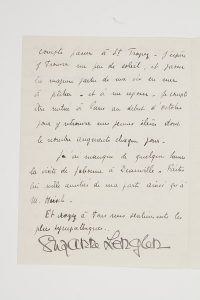 compte passer à St Tropez - J'espère
y trouver un peu de soleil - et passer
la majeure partie de ma vie en mer
à pêcher - et à me reposer. Je compte
être rentrée à Paris au début d'octobre
pour y retrouver mes jeunes élèves dont
le nombre augmente chaque jour.
J'ai manqué de quelques heures
la visite de à Deauville. Faites
lui mille amitiés de ma part ainsi qu'à
M.
Et croyez à tous mes sentiments les
plus sympathiques.
Suzanne Lenglen